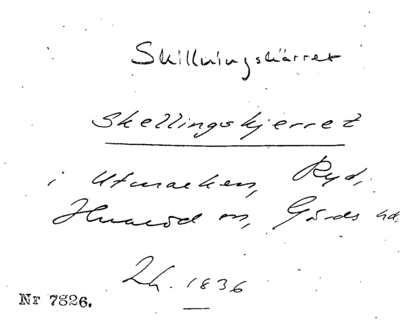 Skillningskärret
Skellingskjerret
i Utmarken, Ryd,
Huaröd sn, Gärds hd.
Lh. 1836
Nr 7826.